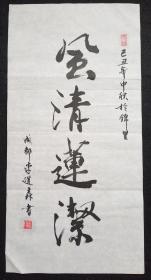 己丑年中秋於錦里
風清蓮潔
成都李道森書